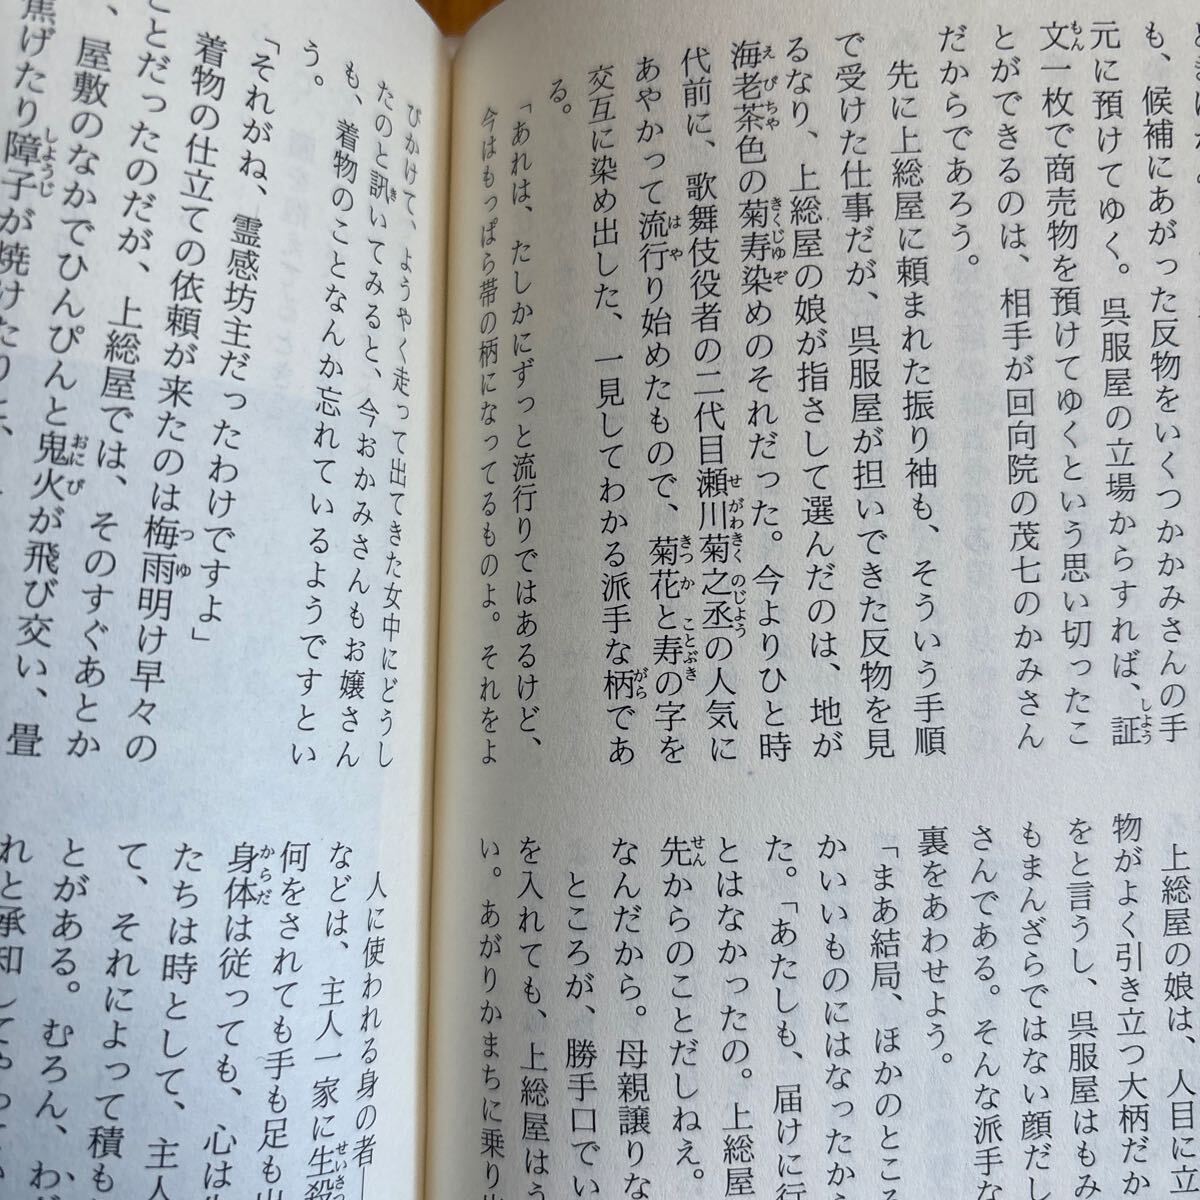 も、候補にあがった反物をいくつかかみさんの手
元に預けてゆく。呉服屋の立場からすれば、証
文一枚で商売物を預けてゆくという思い切ったこ
とができるのは、相手が回向院の茂七のかみさん
だからであろう。
先に上総屋に頼まれた振り袖も、そういう手順
で受けた仕事だが、呉服屋が担いできた反物を見
るなり、上総屋の娘が指さして選んだのは、地が
海老茶色の菊寿染めのそれだった。今よりひと時
代前に、歌舞伎役者の二代目瀬川菊之丞の人気に
あやかって流行り始めたもので、菊花と寿の字を
交互に染め出した、一見してわかる派手な柄であ
る。
「あれは、たしかにずっと流行りではあるけど、
今はもっぱら帯の柄になってるものよ。それをよ
上総屋の娘は、人目に立
物がよく引き立つ大柄だか
をと言うし、呉服屋はもみ
もまんざらではない顔だし
さんである。そんな派手な
裏をあわせよう。
「まあ結局、ほかのところ
かいいものにはなったから
た。「あたしも、届けに行
とはなかったの。上総屋
先からのことだしねえ。
なんだから。母親譲りな
ところが、勝手口でい
を入れても、上総屋はう
い。あがりかまちに乗り
びかけて、ようやく走って出てきた女中にどうし
たのと訊いてみると、今おかみさんもお嬢さん
も、着物のことなんか忘れているようですとい
う。
「それがね、霊感坊主だったわけですよ」
着物の仕立ての依頼が来たのは梅雨明け早々の
ことだったのだが、上総屋では、そのすぐあとか
、屋敷のなかでひんぴんと鬼火が飛び交い、畳
焦げたり障子が焼けたり
人に使われる身の者―
などは、主人一家に生殺
何をされても手も足も出
身体は従っても、心は
たちは時として、主人
て、それによって積も
とがある。むろん、わ
れと承知してやってい